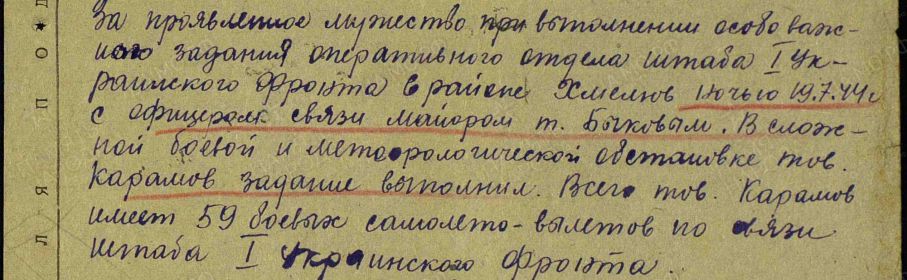 За проявленное мужество при выполнении особо важ-
ного задания оперативного отдела штаба I Ук-
раинского Фронта в районе Хмелюв ночью 19.7.44 г
с офицером связи майором т. Быковым. В слож-
ной боевой и метеорологической обстановке тов.
Карамов задание выполнил. Всего тов. Карамов
имеет 59 боевых самолето-вылетов по связи
штаба I Украинского фронта.
Л Я П П О